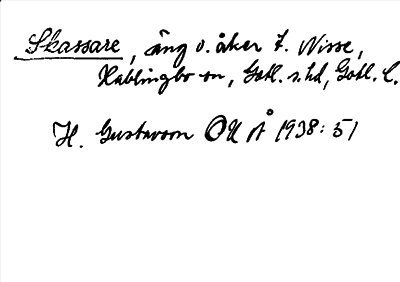 Skassare, äng o. åker t. Nisse,
Hablingbo sn, Gotl. s. hd, Gotl. l.
H. Gustavson OUÅ 1938: 51